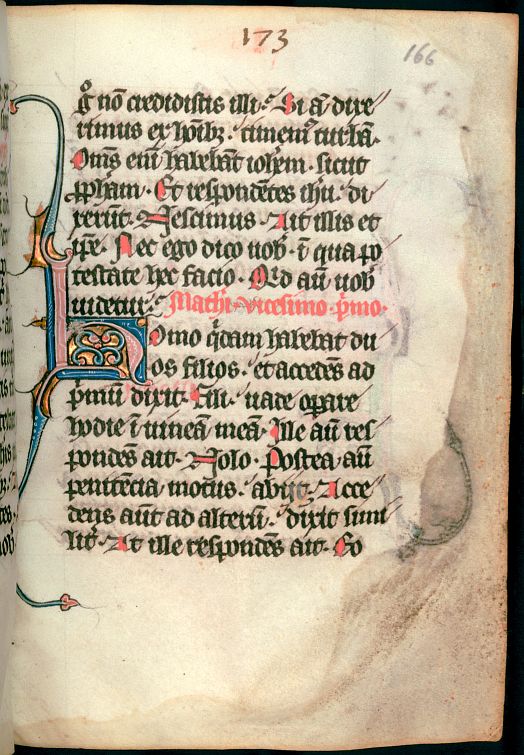 173
166
g̊ nō credidistis illi. Si aū dixe
rimus ex hōibꝫ. timem᷒ turbā.
Oms̄ eni᷒ habebāt iohēm. sicut
ꝓphām. Et respondētes ihu. di
xerūt. Nescimus. Ait illis et
ip̄e. Nec ego dico uob᷒. ī qua po
testate hec facio. Qd̄ aū uob᷒
uidetur. Mathi᷒ vicesimo pͥmo.
Homo qͥdam habebat du
os filios. et accedēs ad
pͥmū dixit. Fili. uade opare
hodie ī uineā meā. Ille aū res
pondēs ait. Nolo. Postea aū
penitēcia motus. abijt. Acce
dens aūt ad alterū. dixit simi
lit᷒. At ille respondēs ait. Eo